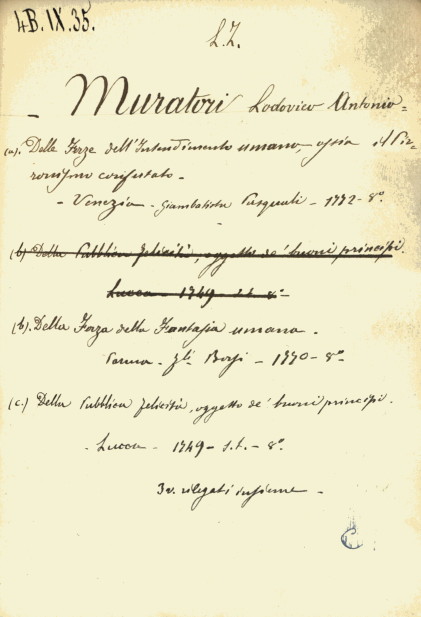 4B.IX.35.
L.Z.
- Muratori Lodovico Antonio =
(a). Delle Forze dell'Intendimento umano, ossia il Pir=
ronismo confutato -
- Venezia - Giambatista Pasquali - 1772 - 8º.
(b) Della Pubblica felicità, oggetto de' buoni principi.
Lucca - 1749 - s.t. - 8º -
(b). Della Forza della Fantasia umana -
Gli. Borsi - 1770 - 8º -
(c.) Della Pubblica felicità, oggetto de' buoni principi.
- Lucca - 1749 - s.t. - 8º.
3 v. rilegati insieme -